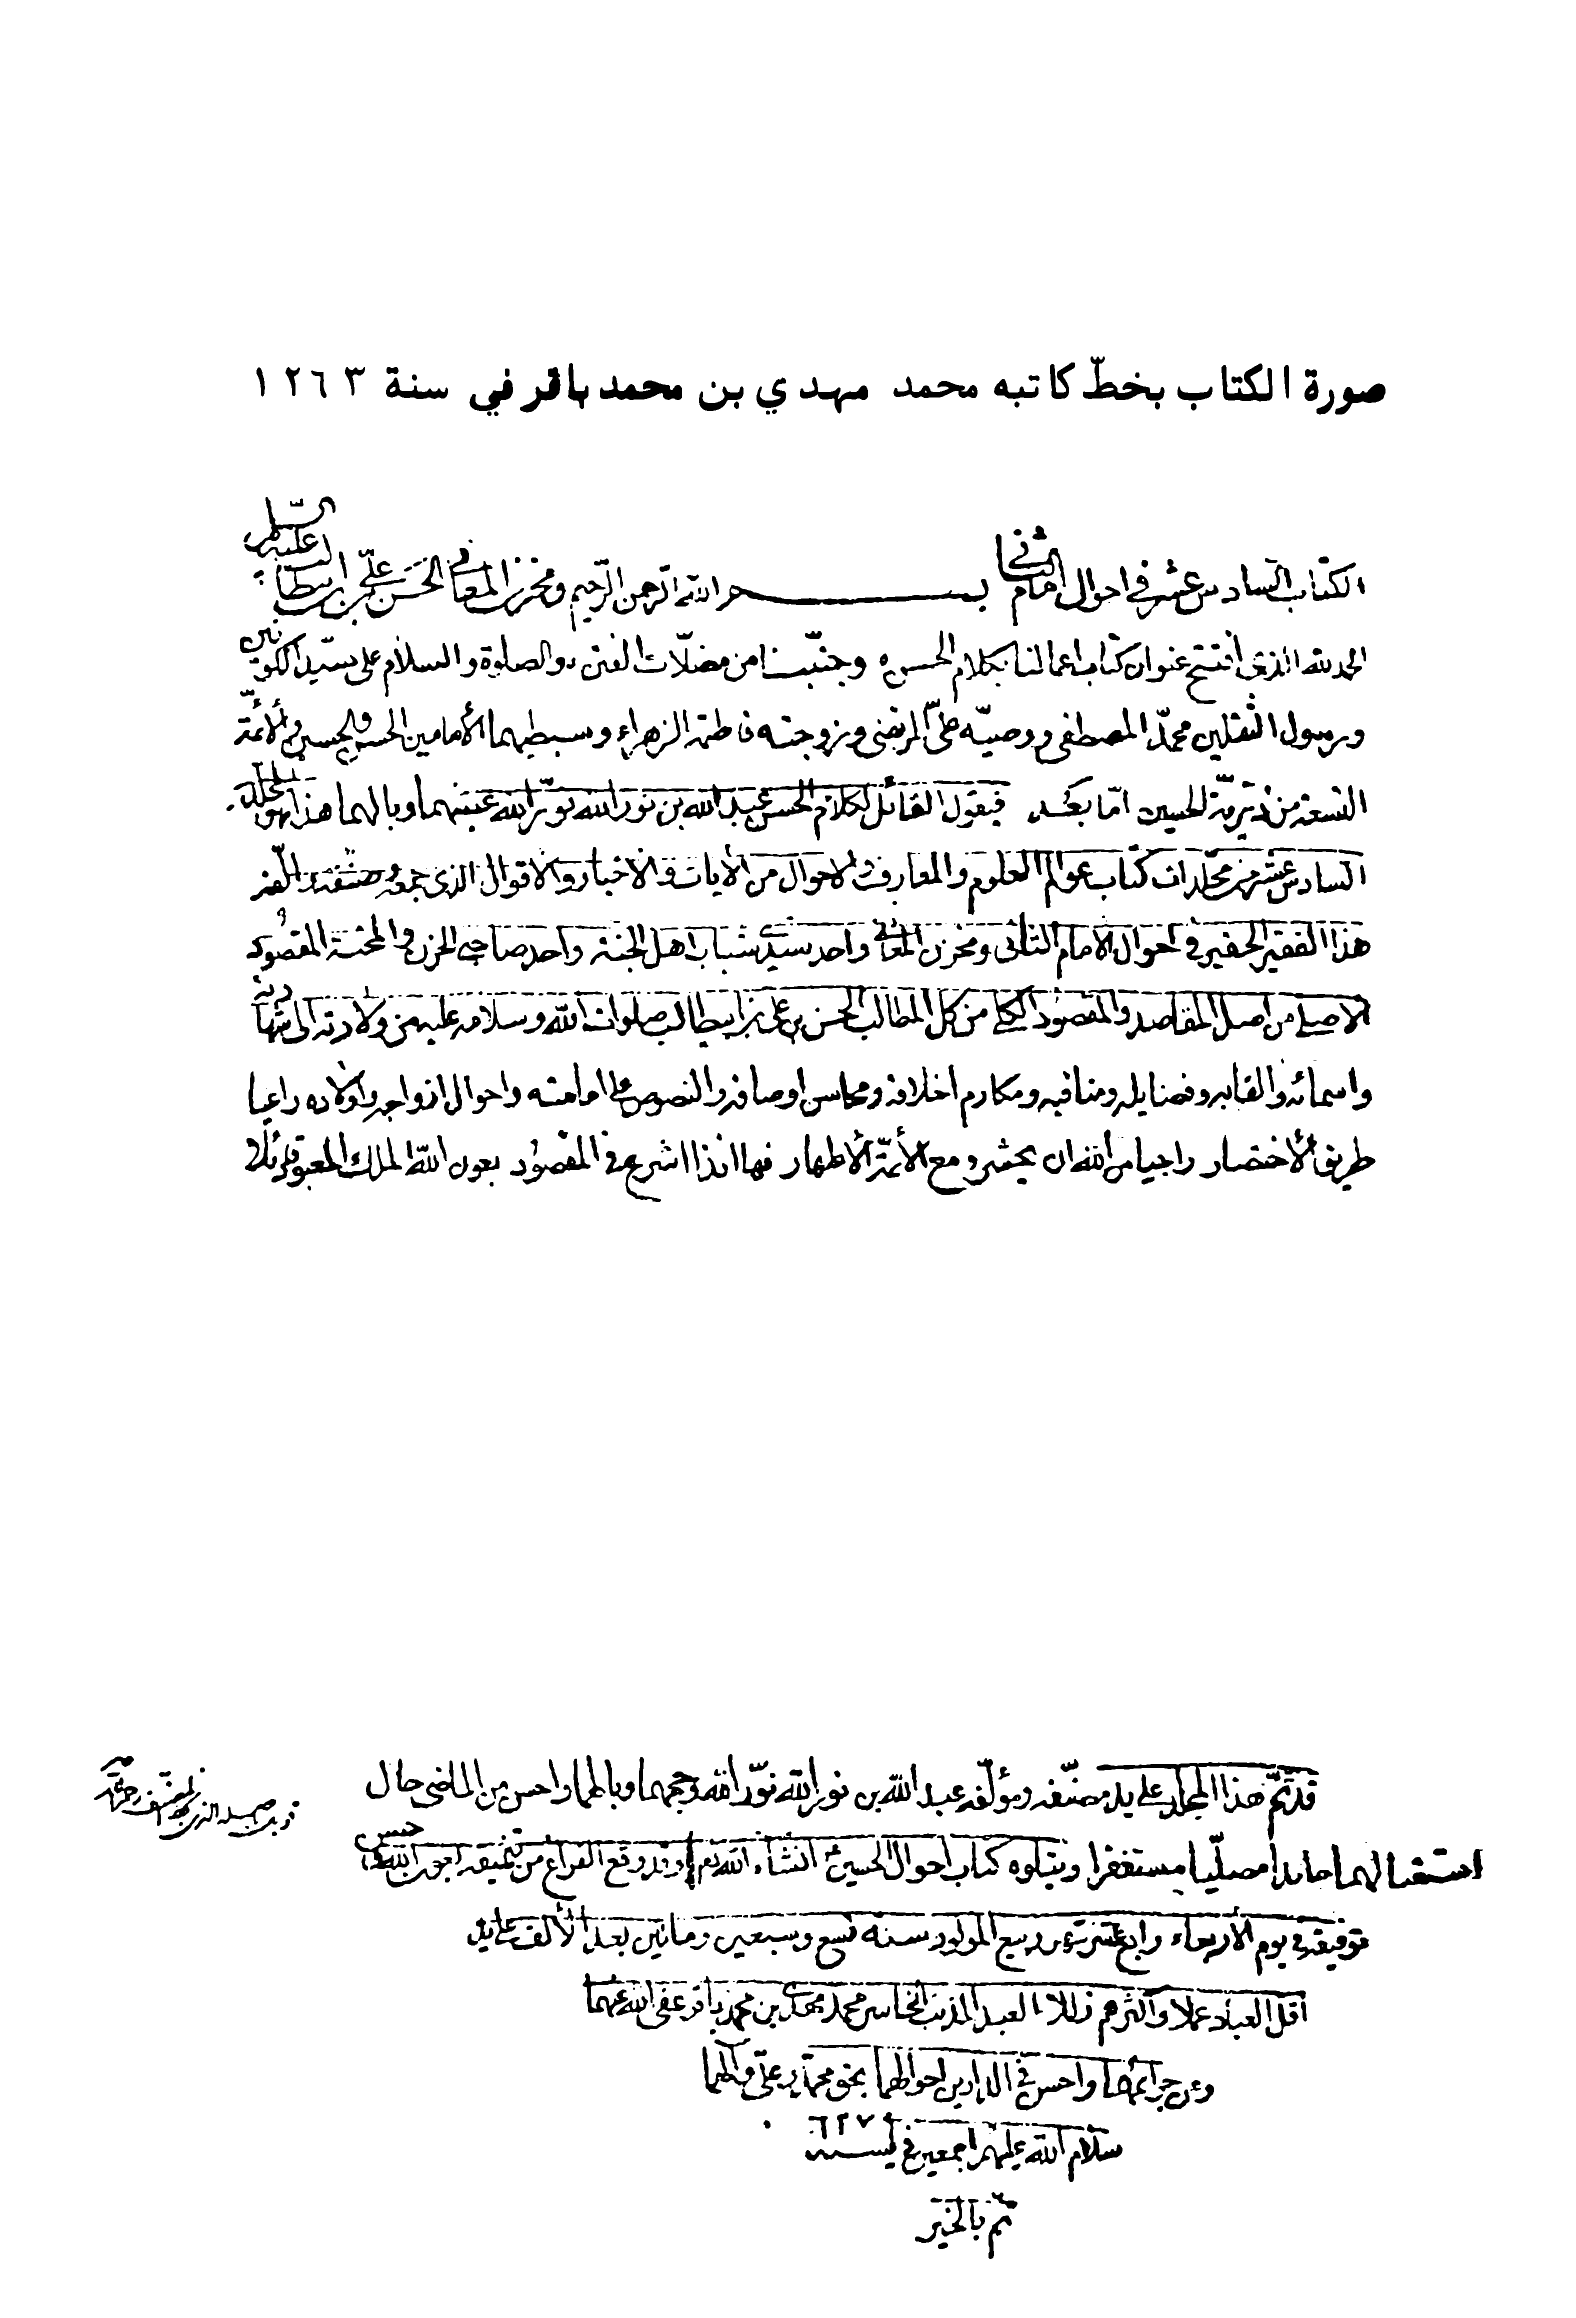 صورة الكتاب بخطّ كاتبه محمد مهدي بن محمد باقر في سنة ١٢٦٣
الكتاب السادس عشر في احوال امام الثاني بسم الله الرحمن الرحيم ومخزن المعاني الحسن بن علي بن ابيطالب عليه السلام
الحمد لله الذي افتتح عنوان كتاب اعمالنا بكلام الحسن وجنّبنا من مضلّات الفتن والصلوة والسلام على سيّد الكونين
ورسول الثقلين محمّد المصطفى ووصيّه عليّ المرتضى وزوجته فاطمة الزهراء وسبطيهما الأمامين الحسن والحسين والأئمّة
التسعة من ذرّيّة الحسين امّا بعد فيقول القائل لكلام الحسن عبد الله بن نور الله نوّر الله عينيهما وبالهما هذا هو المجلد
السادس عشر من مجلّدات كتاب عوالم العلوم والمعارف والاحوال من الأيات والاخبار والاقوال الذي جمعه وصنّفه والّفه
هذا الفقير الحقير في احوال الامام الثاني ومخزن المعاني واحد سيّدي شباب اهل الجنة واحد صاحبي الحزن والمحنة المقصود
الاصلي من اصل المقاصد والمقصود الكلي من كل المطالب الحسن بن علي بن ابيطالب صلوات الله وسلامه عليه من ولادته الى شهادته
واسمائه والقابه وفضايله ومناقبه ومكارم اخلاقه ومحاسن اوصافه والنصوص على امامته واحوال ازواجه واولاده راعيا
طريق الأختصار راجيا من الله ان يحشره مع الأئمّة الأطهار فها انذا اشرع في المقصود بعون الله الملك المعبود
قد تمّ هذا المجلد على يد مصنّفه ومؤلّفه عبد الله بن نور الله نوّر الله وجههما وبالهما واحسن من الماضي حال
استقبالهما حامدا مصلّيا مستغفرا ويتلوه كتاب احوال الحسين ع انشاء الله تع وقد وقع الفراغ من تنميقه بعون الله وحسن
توفيقه في يوم الأربعاء رابع عشر شهر ربيع المولود سنة تسع وسبعين ومائتين بعد الألف على يد
اقل العباد عملا واكثرهم زللا العبد المذنب الخاسر محمد مهدي بن محمد باقر عفى الله عنهما
وعن جرائمهما واحسن في الدارين احوالهما بحق محمّد وعلي وآلهما
سلام الله عليهم اجمعين في سنة
تمّ بالخير